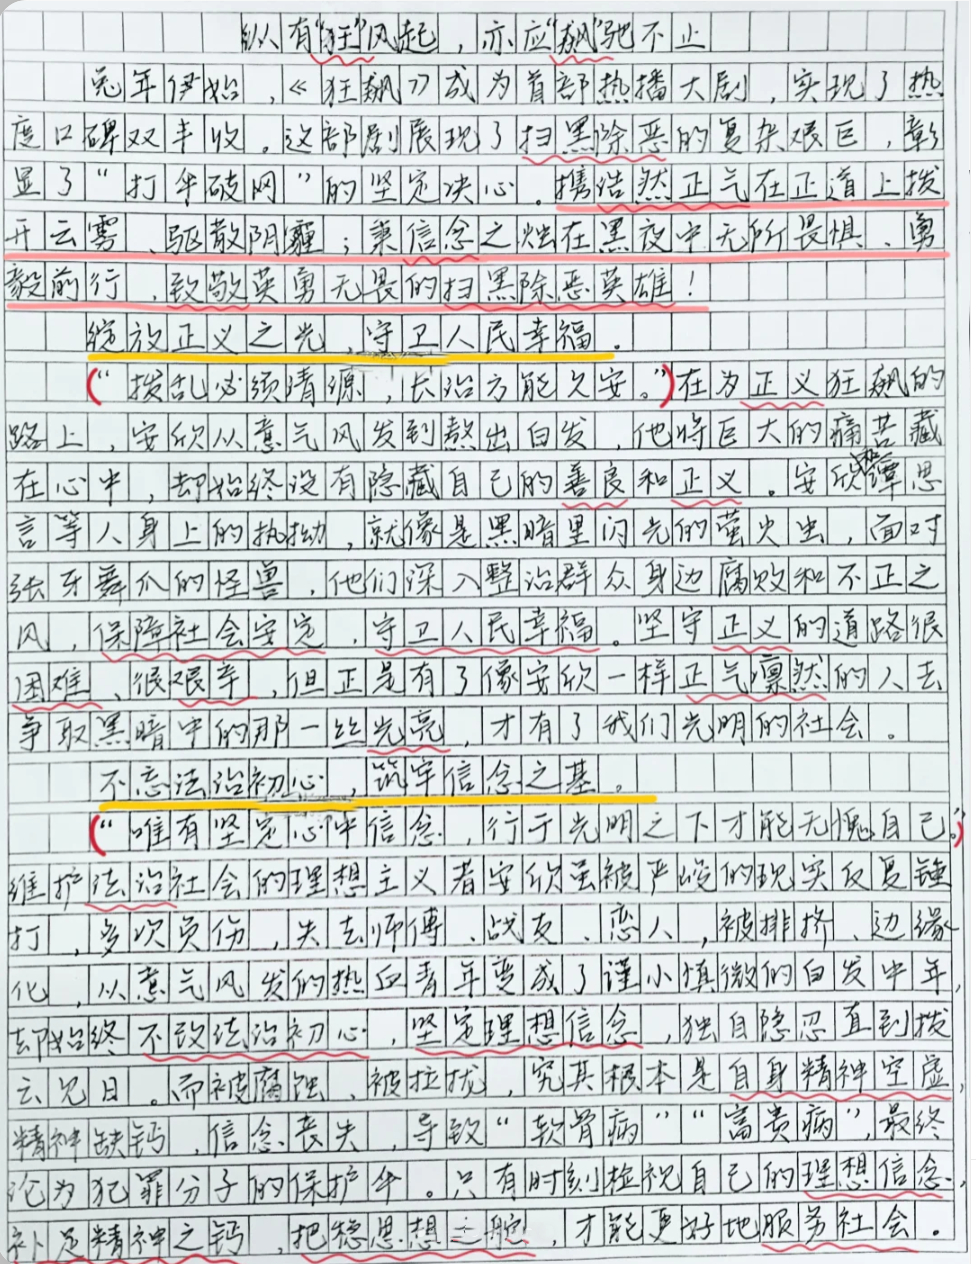 纵有“狂”风起，亦应“飙”驰不止
兔年伊始，《狂飙》成为首部热播大剧，实现了热
度口碑双丰收。这部剧展现了扫黑除恶的复杂艰巨，彰
显了“打伞破网”的坚定决心。携浩然正气在正道上拨
开云雾、驱散阴霾；秉信念之烛在黑夜中无所畏惧、勇
毅前行，致敬英勇无畏的扫黑除恶英雄！
绽放正义之光，守卫人民幸福。
（“拨乱必须清源，长治方能久安。”）在为正义狂飙的
路上，安欣从意气风发到熬出白发，他将巨大的痛苦藏
在心中，却始终没有隐藏自己的善良和正义。安欣和谭思
言等人身上的执拗，就像是黑暗里闪光的萤火虫，面对
张牙舞爪的怪兽，他们深入整治群众身边腐败和不正之
风，保障社会安定，守卫人民幸福。坚守正义的道路很
困难、很艰辛，但正是有了像安欣一样正气凛然的人去
争取黑暗中的那一丝光亮，才有了我们光明的社会。
不忘法治初心，筑牢信念之基。
（“唯有坚定心中信念，行于光明之下才能无愧自己。”）
维护法治社会的理想主义者安欣虽被严峻的现实反复锤
打，多次负伤，失去师傅、战友、恋人，被排挤、边缘
化，从意气风发的热血青年变成了谨小慎微的白发中年，
却始终不改法治初心，坚定理想信念，独自隐忍直到拨
云见日。而被腐蚀、被拉拢，究其根本是自身精神空虚，
精神缺钙，信念丧失，导致“软骨病”“富贵病”，最终
沦为犯罪分子的保护伞。只有时刻检视自己的理想信念，
补足精神之钙，把稳思想之舵，才能更好地服务社会。